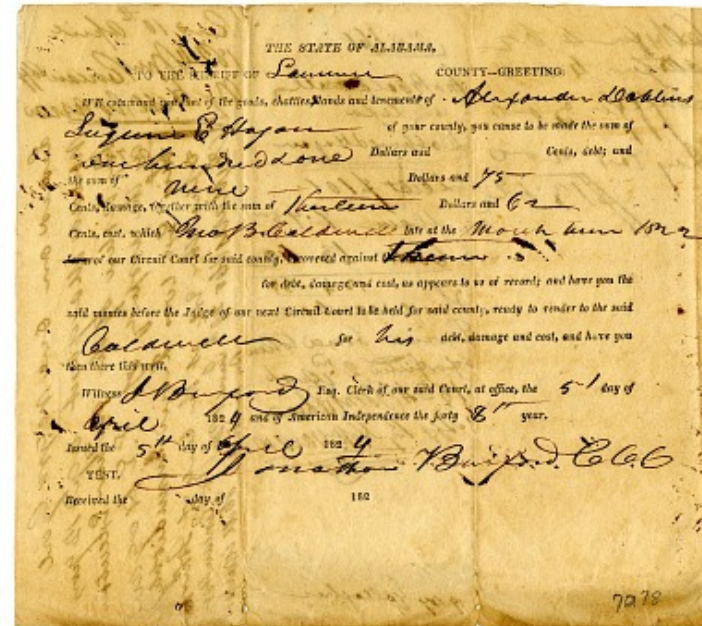 THE STATE OF ALABAMA.
TO THE SHERIFF OF COUNTY—GREETING:
WE command you, that of the goods, chattles, lands and tenements of Alexander Dobbins
Eugene E Hogan of your county, you cause to be made the sum of
one hundred & one Dollars and Cents, debt; and
the sum of nine Dollars and 75
Cents, damage, together with the sum of Dollars and 62
Cents, cost, which Jno B. Caldwell late at the March term 182
of our Circuit Court for said county, recovered against
for debt, damage and cost, as appears to us of record; and have you the
said monies before the Judge of our next Circuit Court to be held for said county, ready to render to the said
Caldwell for his debt, damage and cost, and have you
then there this writ.
Witness J Burford Esq. Clerk of our said Court, at office, the 5 day of
April 1824 and of American Independence the forty 8th year.
Issued the 5th day of April 1824
TEST. Jonathan Burford C C C
Received the day of 182
7278